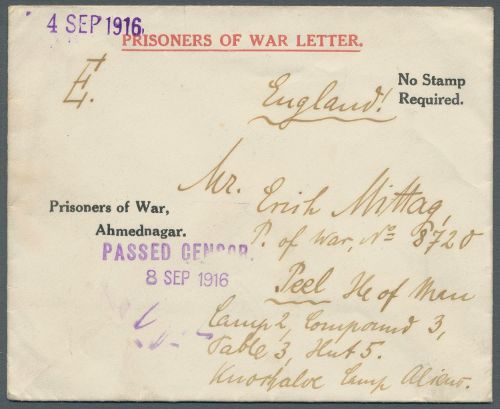 4 SEP 1916.
PRISONERS OF WAR LETTER.
E.
England!
No Stamp
Required.
Mr. Erich Mittag,
Prisoners of War,
Ahmednagar.
P. of War, No 8720
PASSED CENSOR.
8 SEP 1916
Peel Ile of Man
Camp 2, Compound 3,
Table 3, Hut 5.
Knockaloe Camp Aliens.